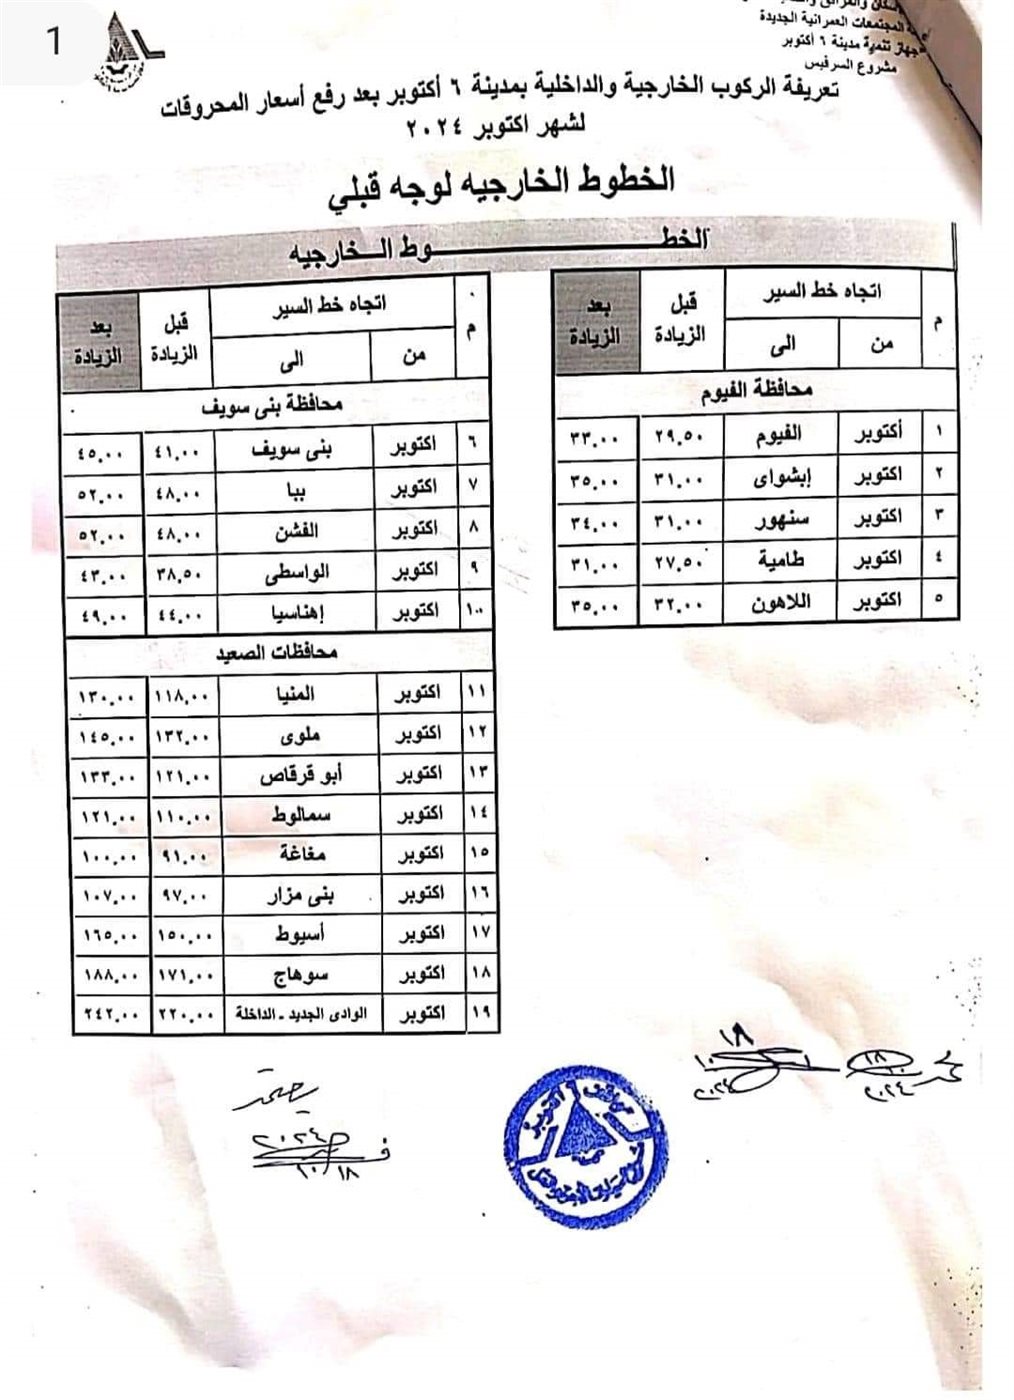 1
المجتمعات العمرانية الجديدة
جهاز تنمية مدينة ٦ أكتوبر
مشروع السرفيس
تعريفة الركوب الخارجية والداخلية بمدينة ٦ أكتوبر بعد رفع أسعار المحروقات
لشهر اكتوبر ٢٠٢٤
الخطوط الخارجيه لوجه قبلي
الخطـــــوط الـخارجيه
م اتجاه خط السير قبل الزيادة بعد الزيادة
من الى
محافظة الفيوم
١ أكتوبر الفيوم ٢٩,٥٠ ٣٣,٠٠
٢ اكتوبر إبشواى ٣١,٠٠ ٣٥,٠٠
٣ اكتوبر سنهور ٣١,٠٠ ٣٤,٠٠
٤ اكتوبر طامية ٢٧,٥٠ ٣١,٠٠
٥ اكتوبر اللاهون ٣٢,٠٠ ٣٥,٠٠
م اتجاه خط السير قبل الزيادة بعد الزيادة
من الى
محافظة بنى سويف
٦ اكتوبر بنى سويف ٤١,٠٠ ٤٥,٠٠
٧ اكتوبر ببا ٤٨,٠٠ ٥٢,٠٠
٨ اكتوبر الفشن ٤٨,٠٠ ٥٢,٠٠
٩ اكتوبر الواسطى ٣٨,٥٠ ٤٣,٠٠
١٠ اكتوبر إهناسيا ٤٤,٠٠ ٤٩,٠٠
محافظات الصعيد
١١ اكتوبر المنيا ١١٨,٠٠ ١٣٠,٠٠
١٢ اكتوبر ملوى ١٣٢,٠٠ ١٤٥,٠٠
١٣ اكتوبر أبو قرقاص ١٢١,٠٠ ١٣٣,٠٠
١٤ اكتوبر سمالوط ١١٠,٠٠ ١٢١,٠٠
١٥ اكتوبر مغاغة ٩١,٠٠ ١٠٠,٠٠
١٦ اكتوبر بنى مزار ٩٧,٠٠ ١٠٧,٠٠
١٧ اكتوبر أسيوط ١٥٠,٠٠ ١٦٥,٠٠
١٨ اكتوبر سوهاج ١٧١,٠٠ ١٨٨,٠٠
١٩ اكتوبر الوادى الجديد - الداخلة ٢٢٠,٠٠ ٢٤٢,٠٠
١٨
١٠
٢٠٢٤
١٨
١٠
٢٠٢٤
يعتمد
٢٠٢٤
١٠/١٨